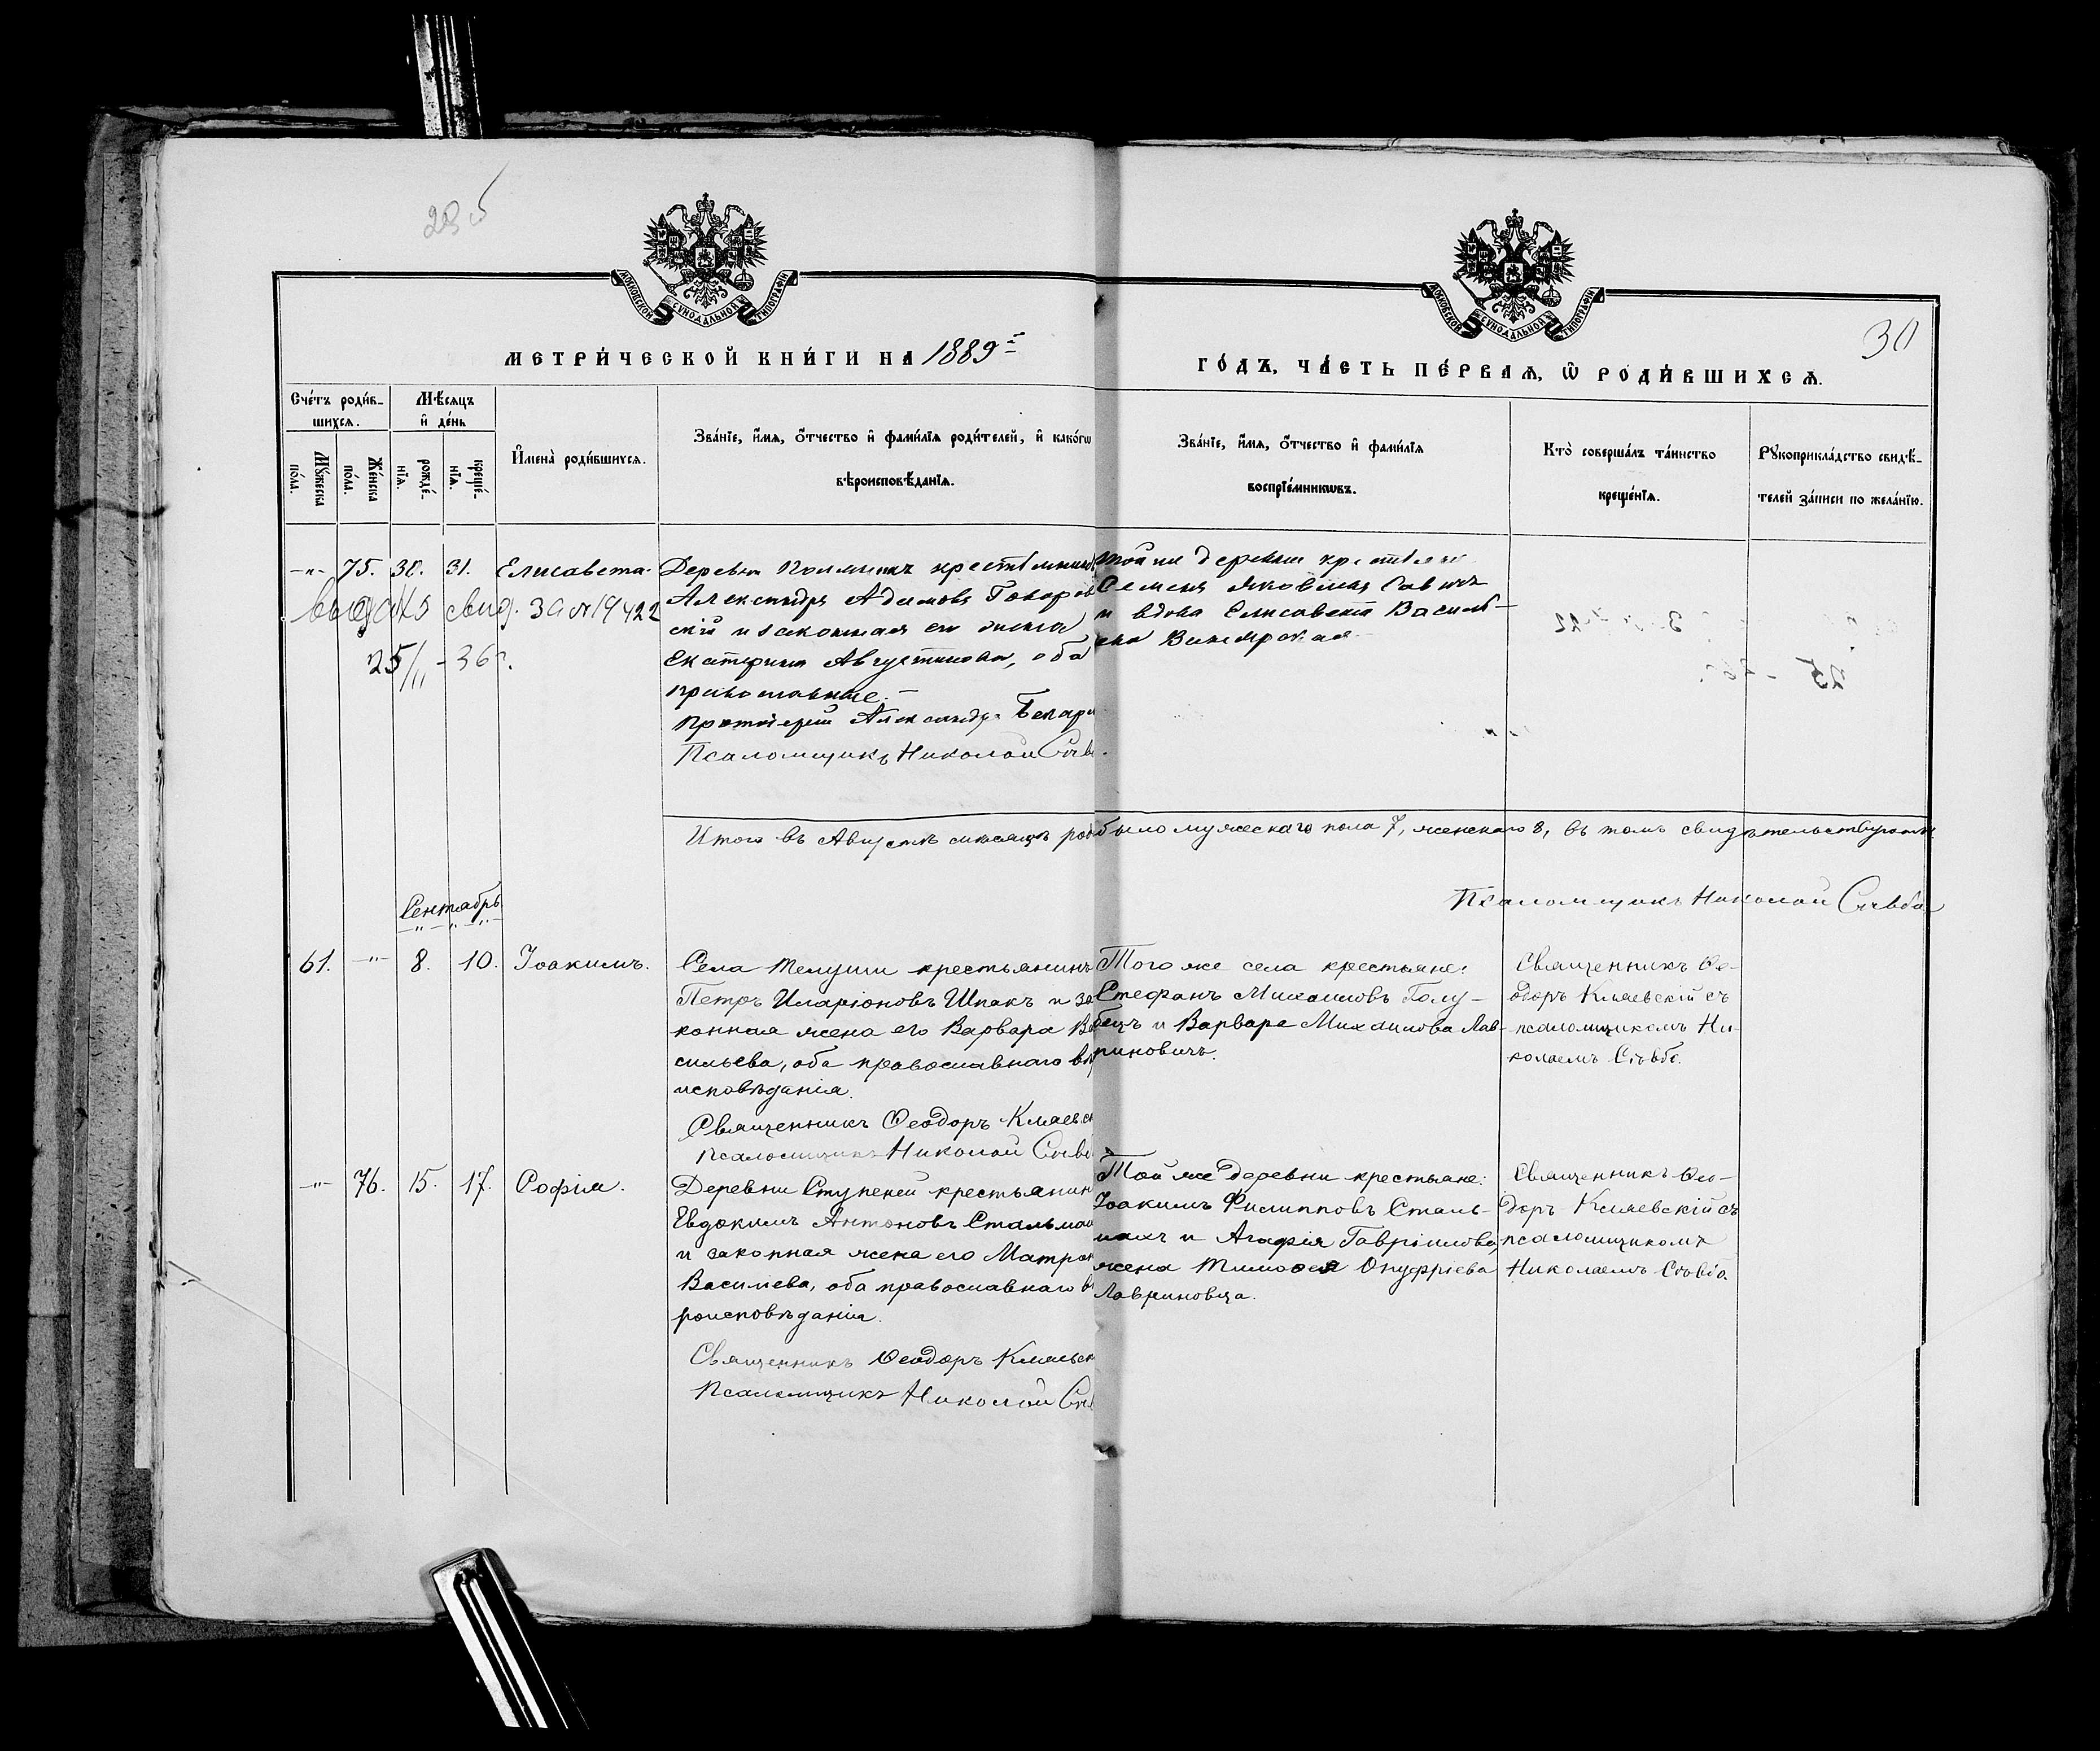 235
30
МОСКОВСКОЙ СѴНОДАЛЬНОЙ ТИПОГРАФІИ
МОСКОВСКОЙ СѴНОДАЛЬНОЙ ТИПОГРАФІИ
МЕТРИ́ЧЕСКОЙ КНИ́ГИ НА 1889й
ГО́ДЪ, ЧА́СТЬ ПЕ́РВАѦ, Ѡ҆ РОДИ́ВШИХСѦ.
Сче́тъ роди́в-
шихсѧ.
Мѣ́сѧцъ
и҆ де́нь
Мꙋ́жеска
по́ла.
Же́нска
по́ла.
рожде́-
нїѧ.
креще́-
нїѧ.
И҆мена̀ роди́вшихсѧ.
Зва́нїе, и҆́мѧ, ѻ҆́тчество и҆ фами́лїѧ роди́телей, и҆ како́гѡ
вѣроисповѣ́данїѧ.
Зва́нїе, и҆́мѧ, ѻ҆́тчество и҆ фами́лїѧ
воспрїе́мникѡвъ.
Кто̀ соверша́лъ та́инство
креще́нїѧ.
Рꙋкоприкла́дство свидѣ́-
телей за́писи по жела́нїю.
-"- 75. 30. 31. Елисавета.
выдано свид. ЗА №19422
25/11-36г.
Деревни
Александръ Адамовъ
скій и законная его жена
Екатерина Августинова, оба
православные.-
Протоіерей Александръ
Псаломщикъ Николай
Той же деревни крестьяне
Семенъ Яковлевъ
и вдова Елисавета Василь-
ева
Итого въ Августѣ мѣсяцѣ родъ было мужескаго пола 7, женскаго 8, въ томъ свидѣтельствуютъ:
Псаломщикъ Николай Съвба
Сентябрь
61. -"- 8. 10. Іоакимъ.
Села Телуши крестьянинъ
Петръ Иларіоновъ Шпакъ и за
конная жена его Варвара Ва
сильева, оба православнаго вѣ
исповѣданія.
Священникъ Ѳеодоръ
Псаломщикъ Николай
Того же села крестьяне:
Стефанъ Михаиловъ Голу-
бецъ и Варвара Михаилова Лав-
риновичъ.
Священникъ Ѳе-
одоръ Кляевскій съ
псаломщикомъ Ни-
колаемъ Съвбо.
-"- 76. 15. 17. Софія.
Деревни Ступеней крестьянин
Евдокимъ Антоновъ Стальмах
и законная жена его Матрон
Василіева, оба православнаго вѣ
роисповѣданія.
Священникъ Ѳеодоръ
Псаломщикъ Николай
Той же деревни крестьяне:
Іоакимъ Филипповъ Сталь-
махъ и Агафія Гавріилова,
жена Тимоѳея Онуфріева
Лавриновича.
Священникъ Ѳео-
доръ Кляевскій съ
псаломщикомъ
Николаемъ Съвбо.